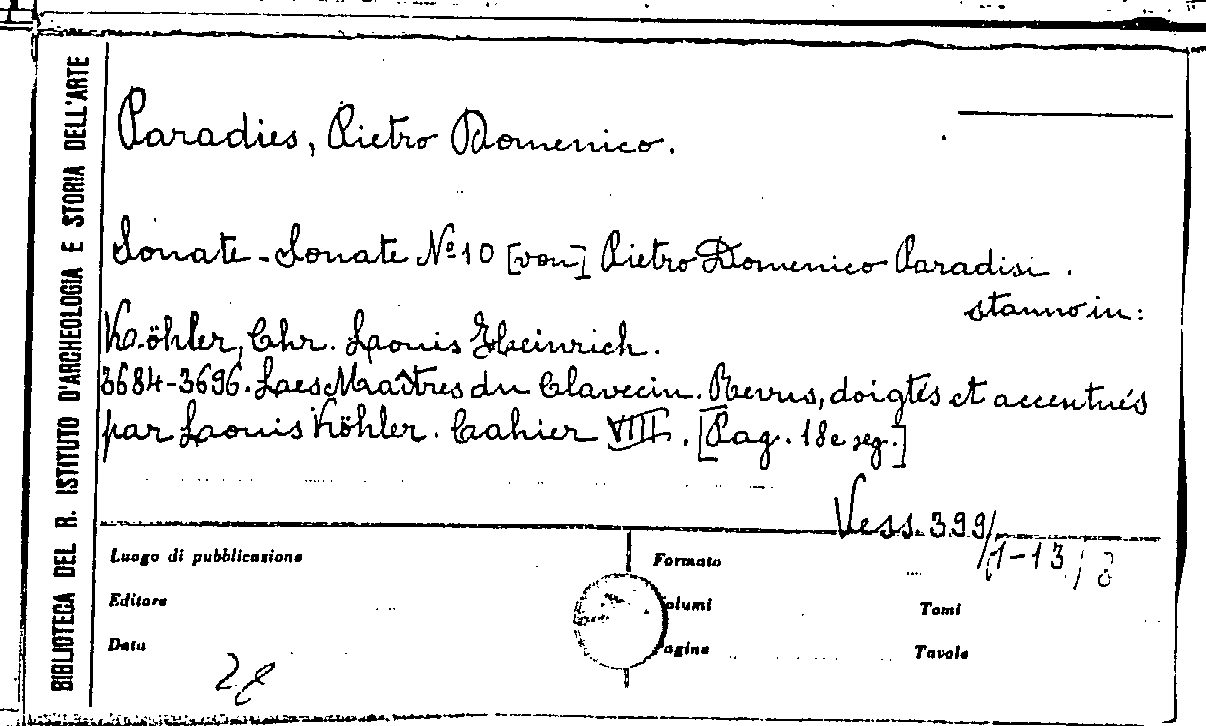 BIBLIOTECA DEL R. ISTITUTO D'ARCHEOLOGIA E STORIA DELL'ARTE
Paradies, Pietro Domenico.
Sonate - Sonate Nº 10 [von] Pietro Domenico Paradisi.
stanno in:
Köhler, Chr. Louis Heinrich.
3684-3696. Les Maîtres du Clavecin. Revus, doigtés et accentués
par Louis Köhler. Cahier VIII. [Pag. 18 e seg.]
Vess. 399/
1-13/8
Luogo di pubblicazione
Formato
Editore
Volumi
Tomi
Data
Pagine
Tavole